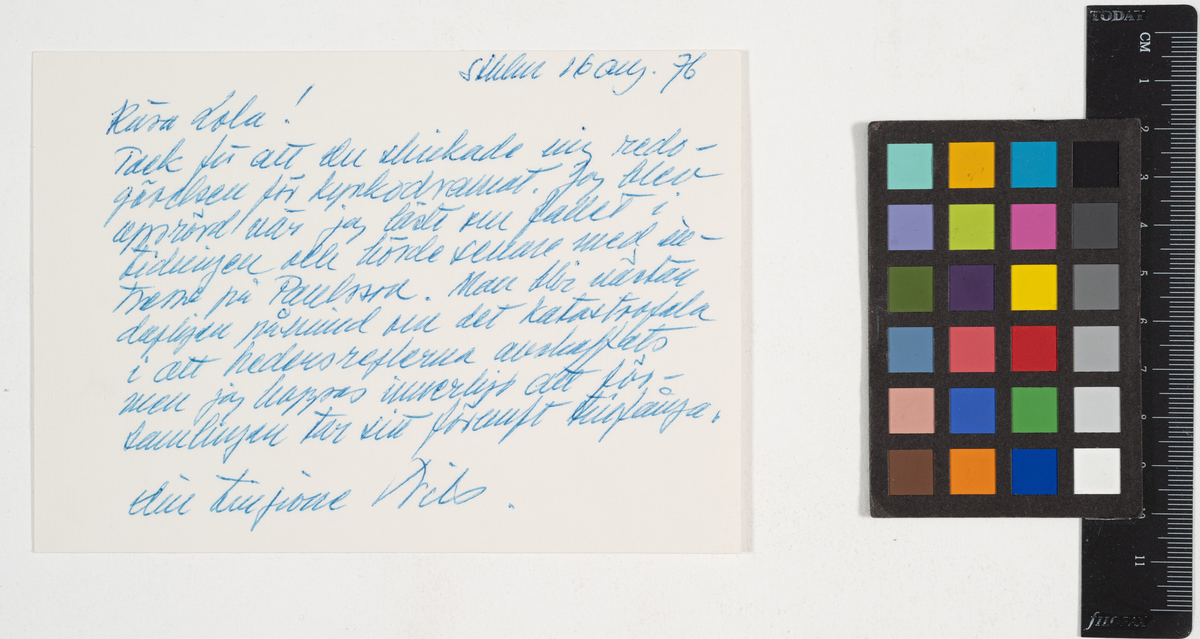 Sthlm 16 aug. 76
Kära Lola!
Tack för att du skickade mig redo-
görelsen för kyrkodramat. Jag blev
upprörd när jag läste om fallet i
tidningen och hörde senare med in-
tresse på Paulsson. Man blir nästan
dagligen påmind om det katastrofala
i att hedersreglerna avskaffats
men jag hoppas innerligt att för-
samlingen tar sitt förnuft tillfånga.
din tillgivne Nils.
TODAY
CM
1
2
3
4
5
6
7
8
9
10
11